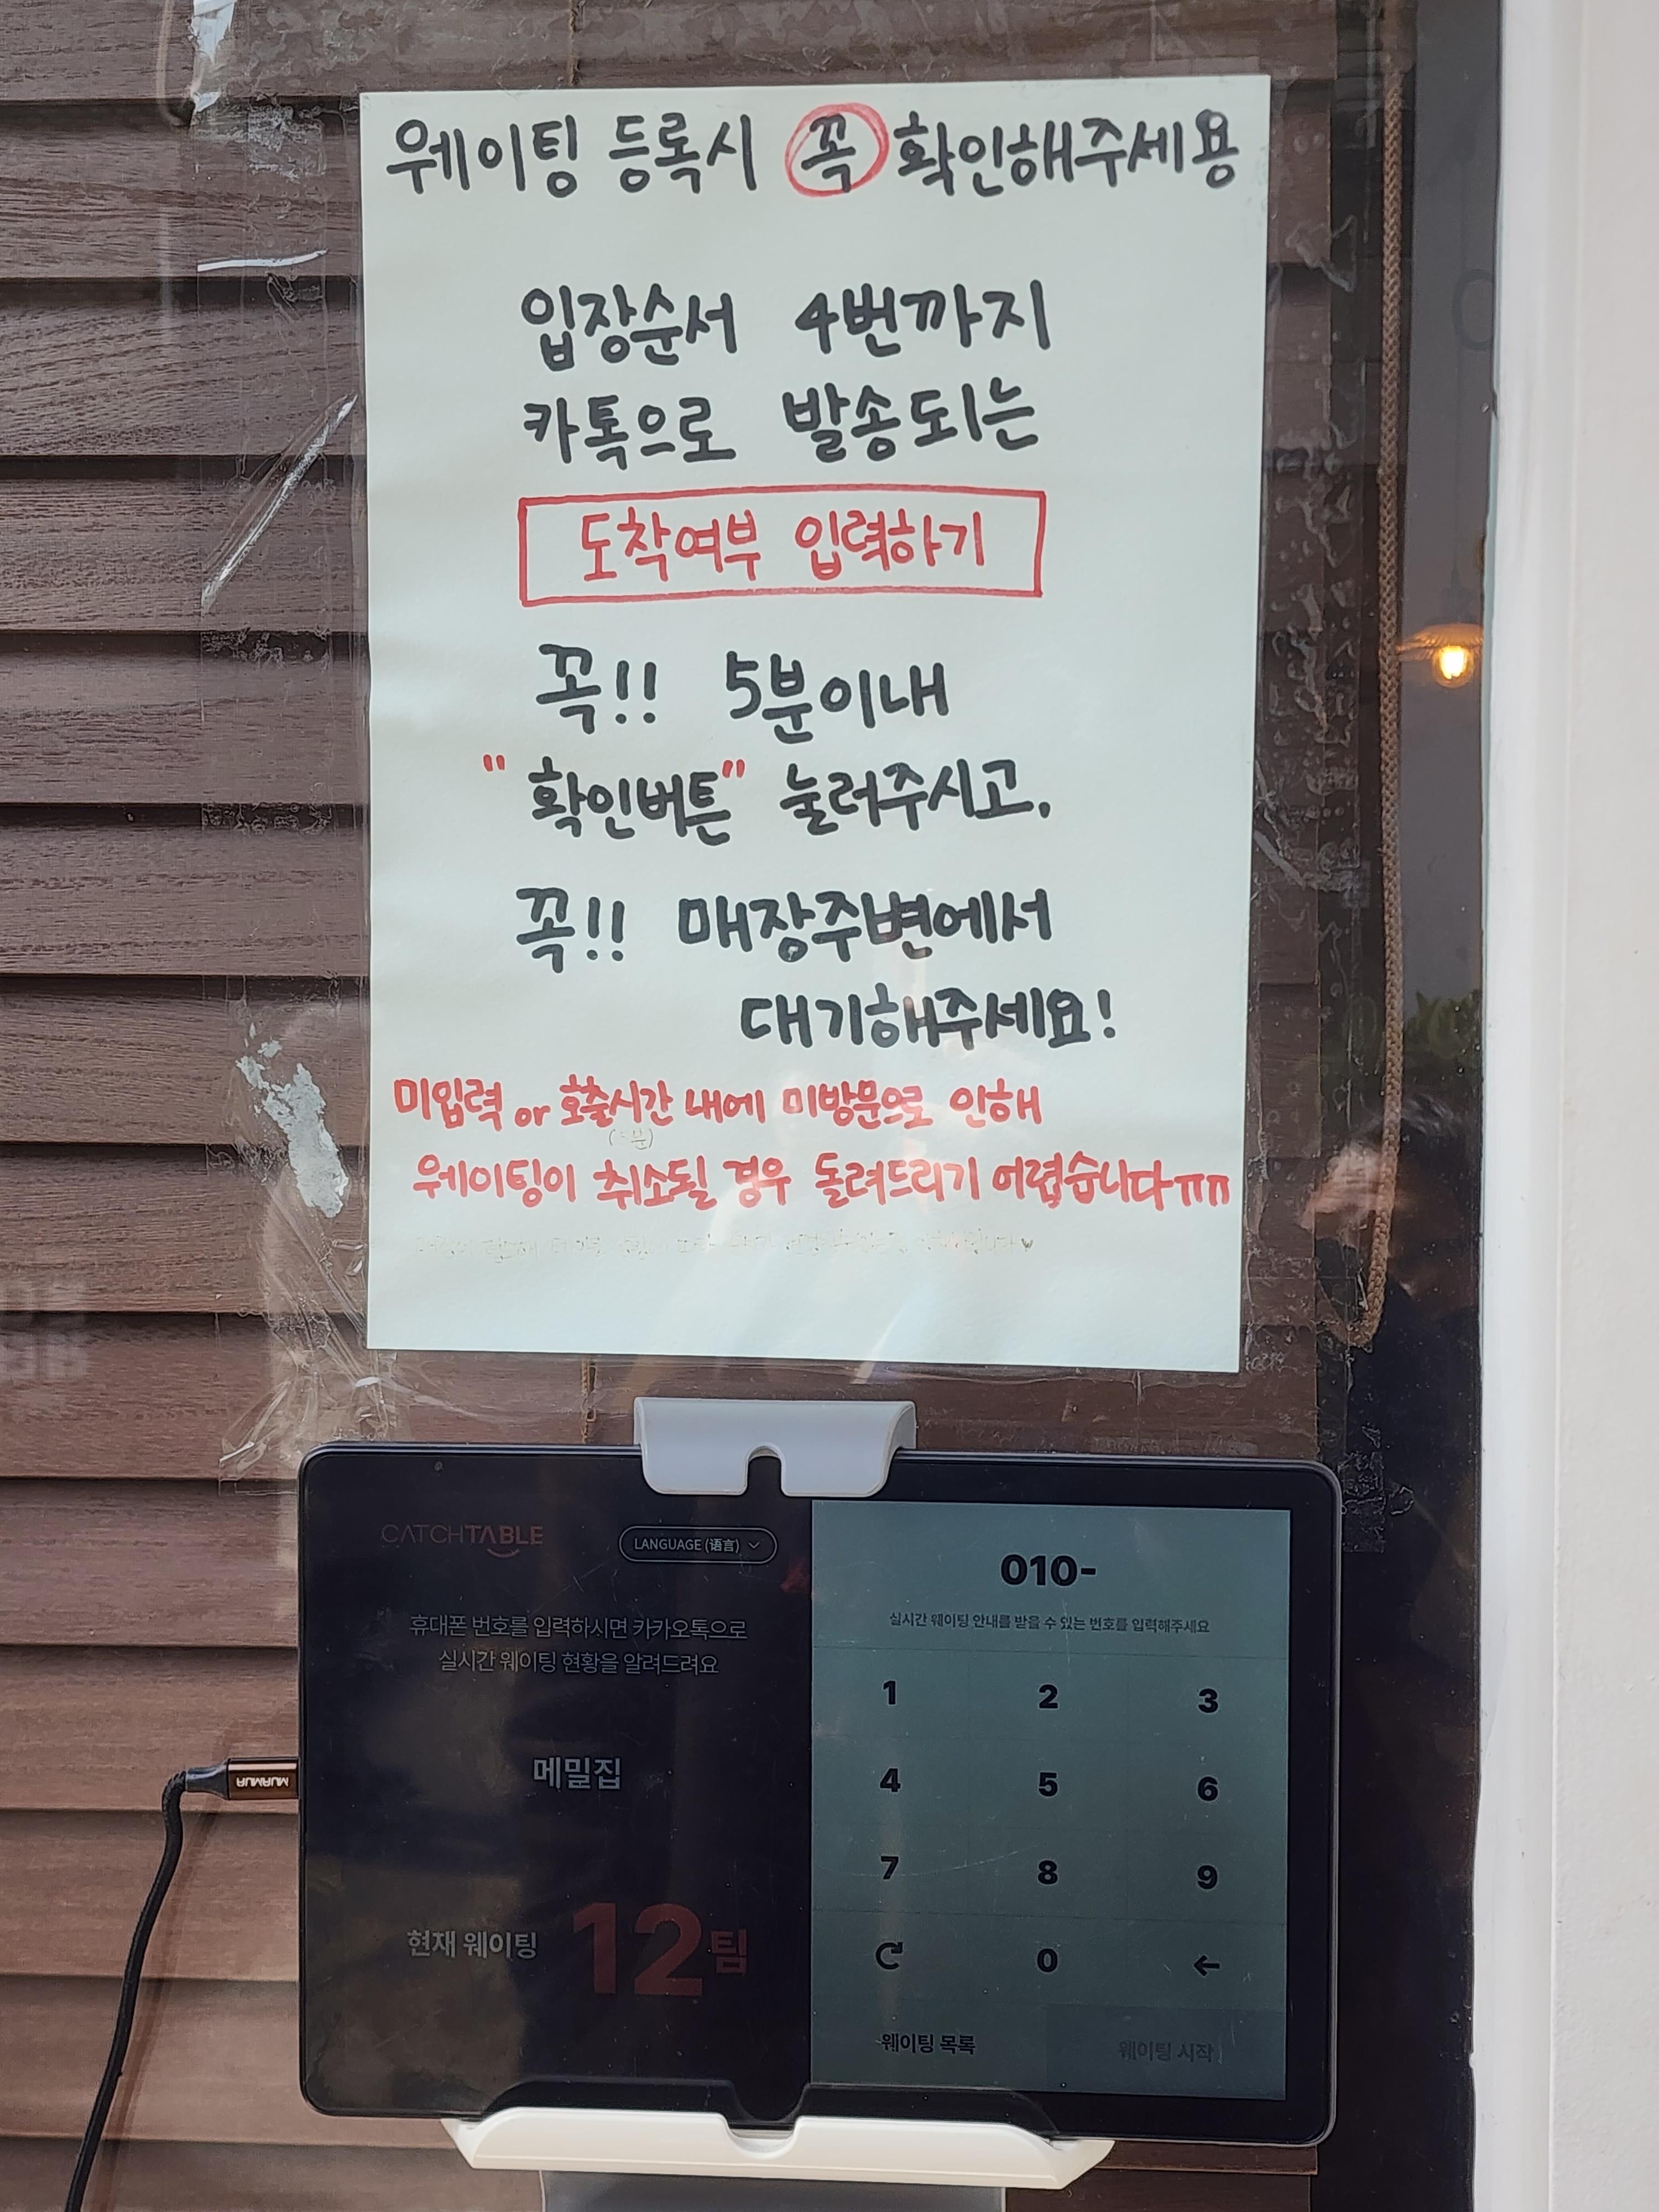 웨이팅 등록시 꼭 확인해주세용
입장순서 4번까지
카톡으로 발송되는
도착여부 입력하기
꼭!! 5분이내
"확인버튼" 눌러주시고,
꼭!! 매장주변에서
대기해주세요!
미입력 or 호출시간 내에 미방문으로 인해
웨이팅이 취소될 경우 돌려드리기 어렵습니다ㅠㅠ
CATCHTABLE
LANGUAGE (语言)
휴대폰 번호를 입력하시면 카카오톡으로
실시간 웨이팅 현황을 알려드려요
메밀집
현재 웨이팅 12팀
010-
실시간 웨이팅 안내를 받을 수 있는 번호를 입력해주세요
1 2 3
4 5 6
7 8 9
0
웨이팅 목록 웨이팅 시작